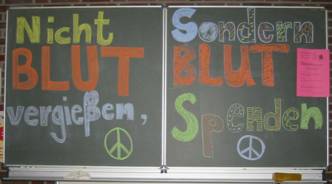 Nicht
BLUT
vergießen,
Sondern
BLUT
Spenden